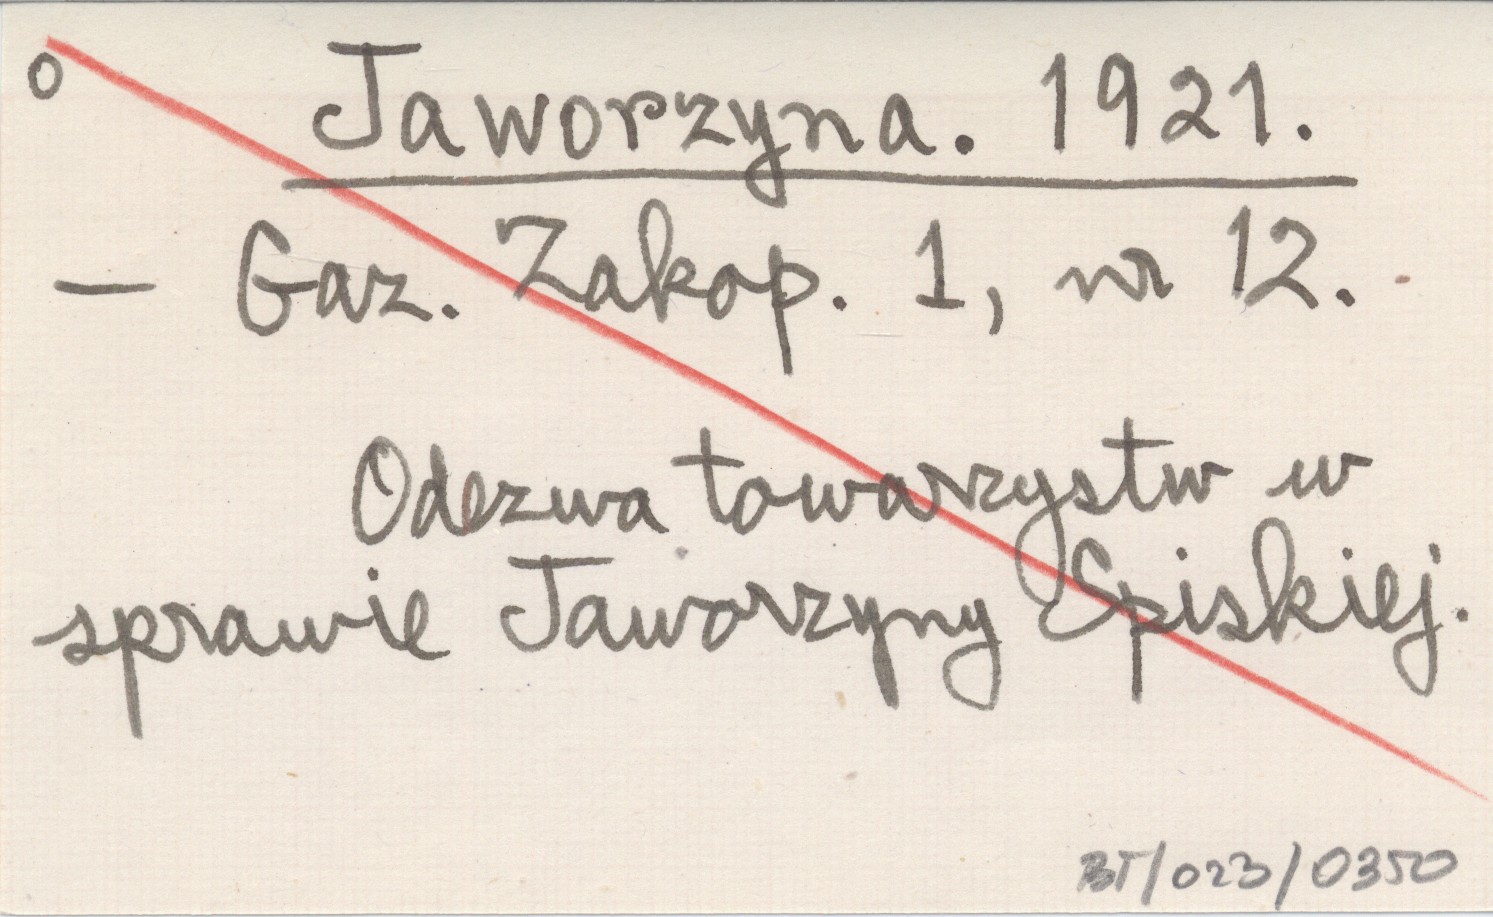 o
Jaworzyna. 1921.
— Gaz. Zakop. 1, nr 12.
Odezwa towarzystw w
sprawie Jaworzyny Spiskiej.
BT/023/0350